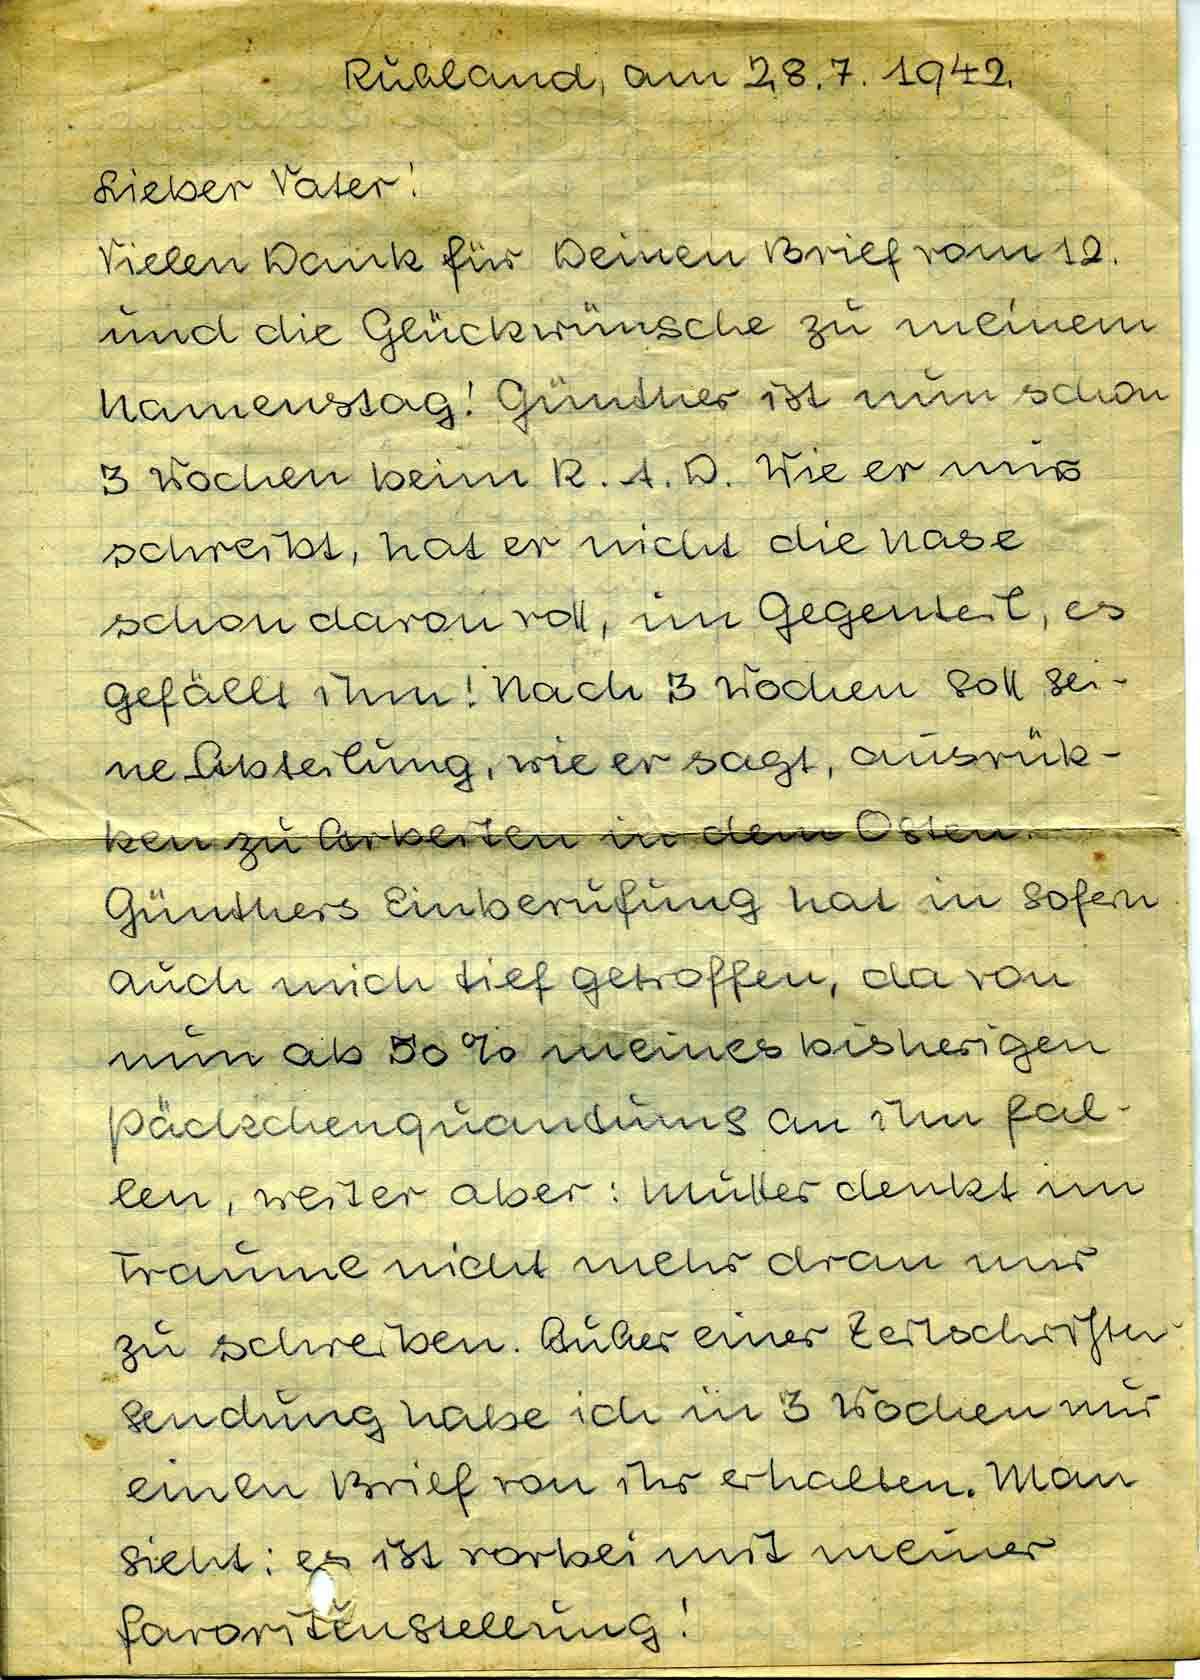 Ruhland, am 28.7.1942.
Lieber Vater!
Vielen Dank für Deinen Brief vom 12.
und die Glückwünsche zu meinem
Namenstag! Günther ist nun schon
3 Wochen beim R.A.D. Wie er mir
schreibt, hat er nicht die Nase
schon davon voll, im Gegenteil, es
gefällt ihm! Nach 3 Wochen soll sei-
ne Abteilung, wie er sagt, ausrük-
ken zu Arbeiten in dem Osten.
Günthers Einberufung hat in sofern
auch mich tief getroffen, da von
nun ab 50% meines bisherigen
Päckchenquantums an ihn fal-
len, weiter aber: Mutter denkt im
Traume nicht mehr dran mir
zu schreiben. Außer einer Zeitschriften
sendung habe ich in 3 Wochen nur
einen Brief von ihr erhalten. Man
sieht: es ist vorbei mit meiner
Favoritenstellung!